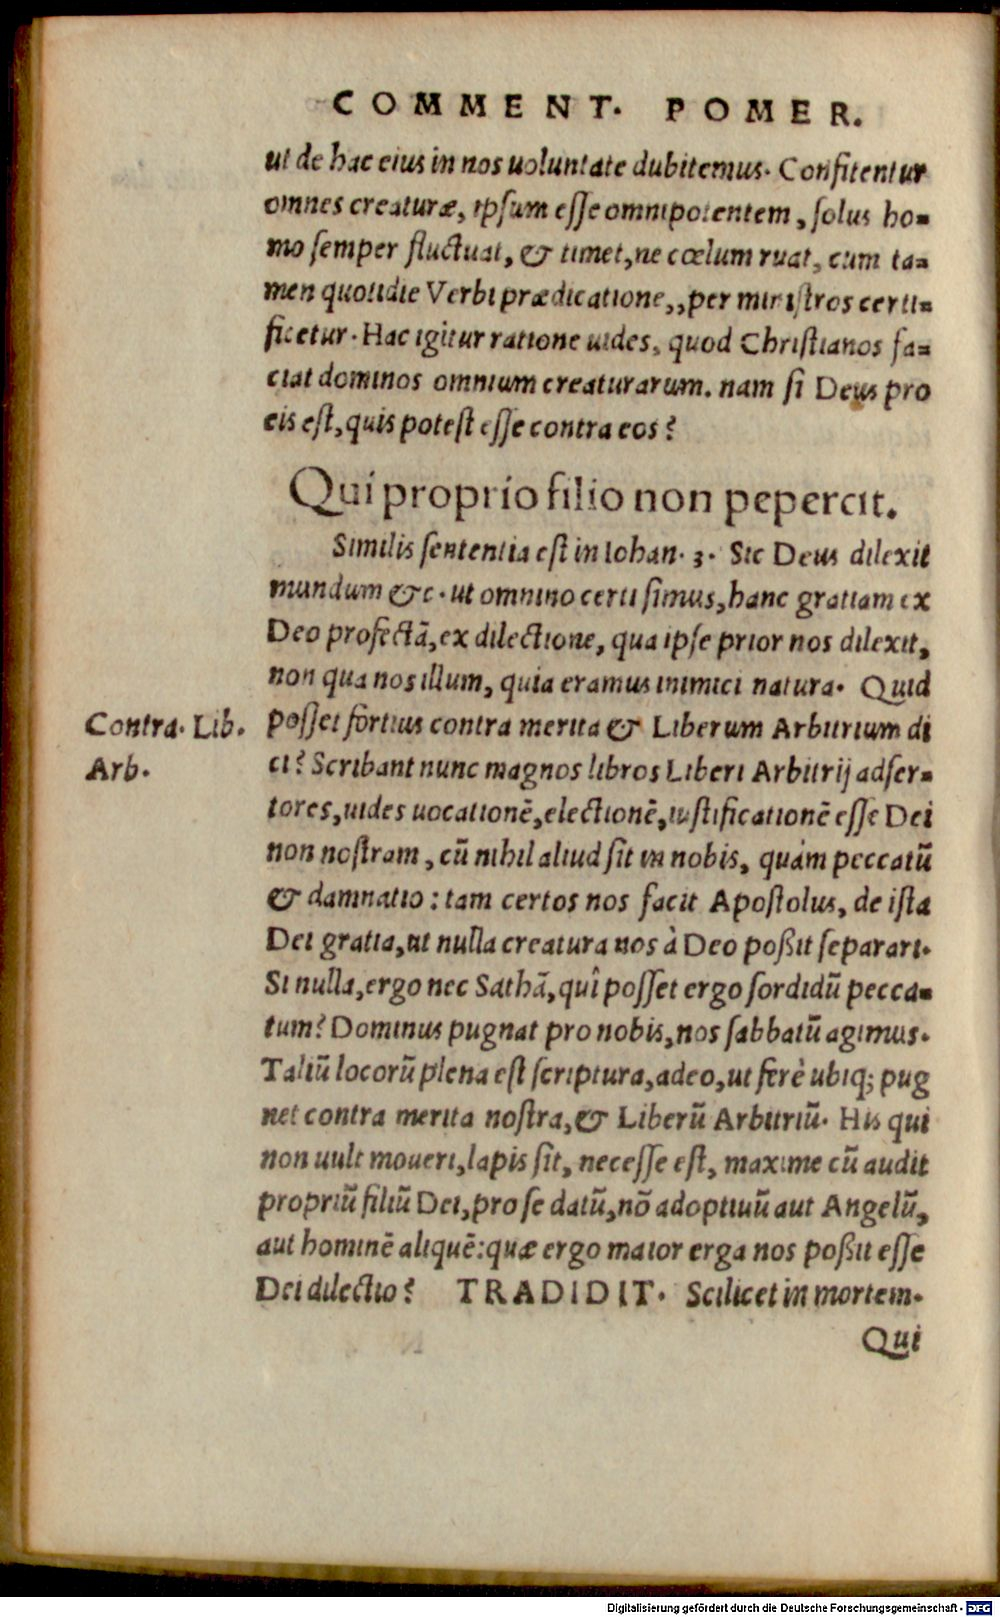 COMMENT. POMER.
ut de hac eius in nos uoluntate dubitemus. Confitentur
omnes creaturæ, ipsum esse omnipotentem, solus ho-
mo semper fluctuat, & timet, ne cœlum ruat, cum ta-
men quotidie Verbi prædicatione,, per ministros certi-
ficetur. Hac igitur ratione uides, quod Christianos fa-
ciat dominos omnium creaturarum. nam si Deus pro
eis est, quis potest esse contra eos?
Qui proprio filio non pepercit.
Similis sententia est in Iohan. 3. Sic Deus dilexit
mundum &c. ut omnino certi simus, hanc gratiam ex
Deo profectā, ex dilectione, qua ipse prior nos dilexit,
non qua nos illum, quia eramus inimici natura. Quid
Contra. Lib.
Arb.
posset fortius contra merita & Liberum Arbitrium di
ci? Scribant nunc magnos libros Liberi Arbitrij adser-
tores, uides uocationē, electionē, iustificationē esse Dei
non nostram, cū nihil aliud sit in nobis, quàm peccatū
& damnatio: tam certos nos facit Apostolus, de ista
Dei gratia, ut nulla creatura nos à Deo poßit separari.
Si nulla, ergo nec Sathā, quî posset ergo sordidū pecca-
tum? Dominus pugnat pro nobis, nos sabbatū agimus.
Taliū locorū plena est scriptura, adeo, ut ferè ubiq; pug
net contra merita nostra, & Liberū Arbitriū. His qui
non uult moueri, lapis sit, necesse est, maxime cū audit
propriū filiū Dei, pro se datū, nō adoptiuū aut Angelū,
aut hominē aliquē: quæ ergo maior erga nos poßit esse
Dei dilectio? TRADIDIT. Scilicet in mortem.
Qui
Digitalisierung gefördert durch die Deutsche Forschungsgemeinschaft - DFG